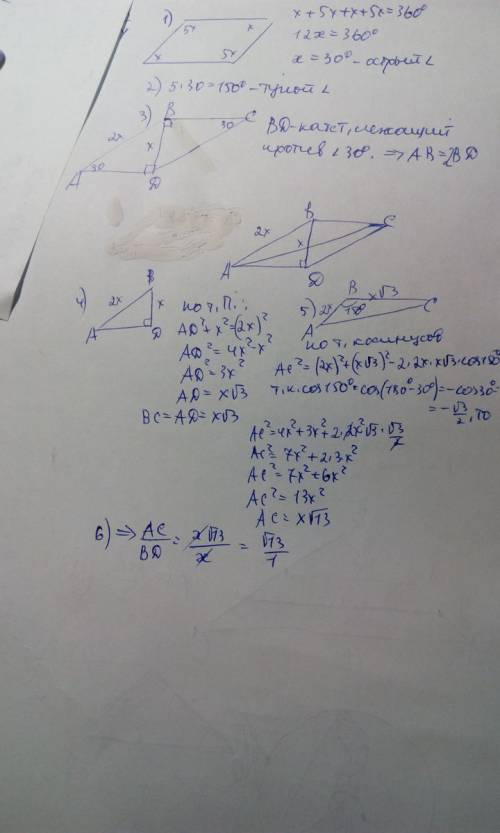 1) 5x x
x 5x
x + 5x + x + 5x = 360°
12x = 360°
x = 30° - острый ∠
2) 5·30 = 150° - тупой ∠
3) B C
2x x 30
A 30 D
BD - катет, лежащий
против ∠30°. ⇒ AB = 2BD
B C
2x x
A D
4) B
2x x
A D
по т. П.:
AD² + x² = (2x)²
AD² = 4x² - x²
AD² = 3x²
AD = x√3
BC = AD = x√3
5) B x√3 C
2x 150°
A
по т. косинусов
AC² = (2x)² + (x√3)² - 2·2x·x√3·cos150°
т.к. cos150° = cos(180° - 30°) = -cos30° =
= -√3/2, то
AC² = 4x² + 3x² + 2·2x²√3·√3/2
AC² = 7x² + 2·3x²
AC² = 7x² + 6x²
AC² = 13x²
AC = x√13
6) ⇒ AC/BD = x√13/x = √13/1